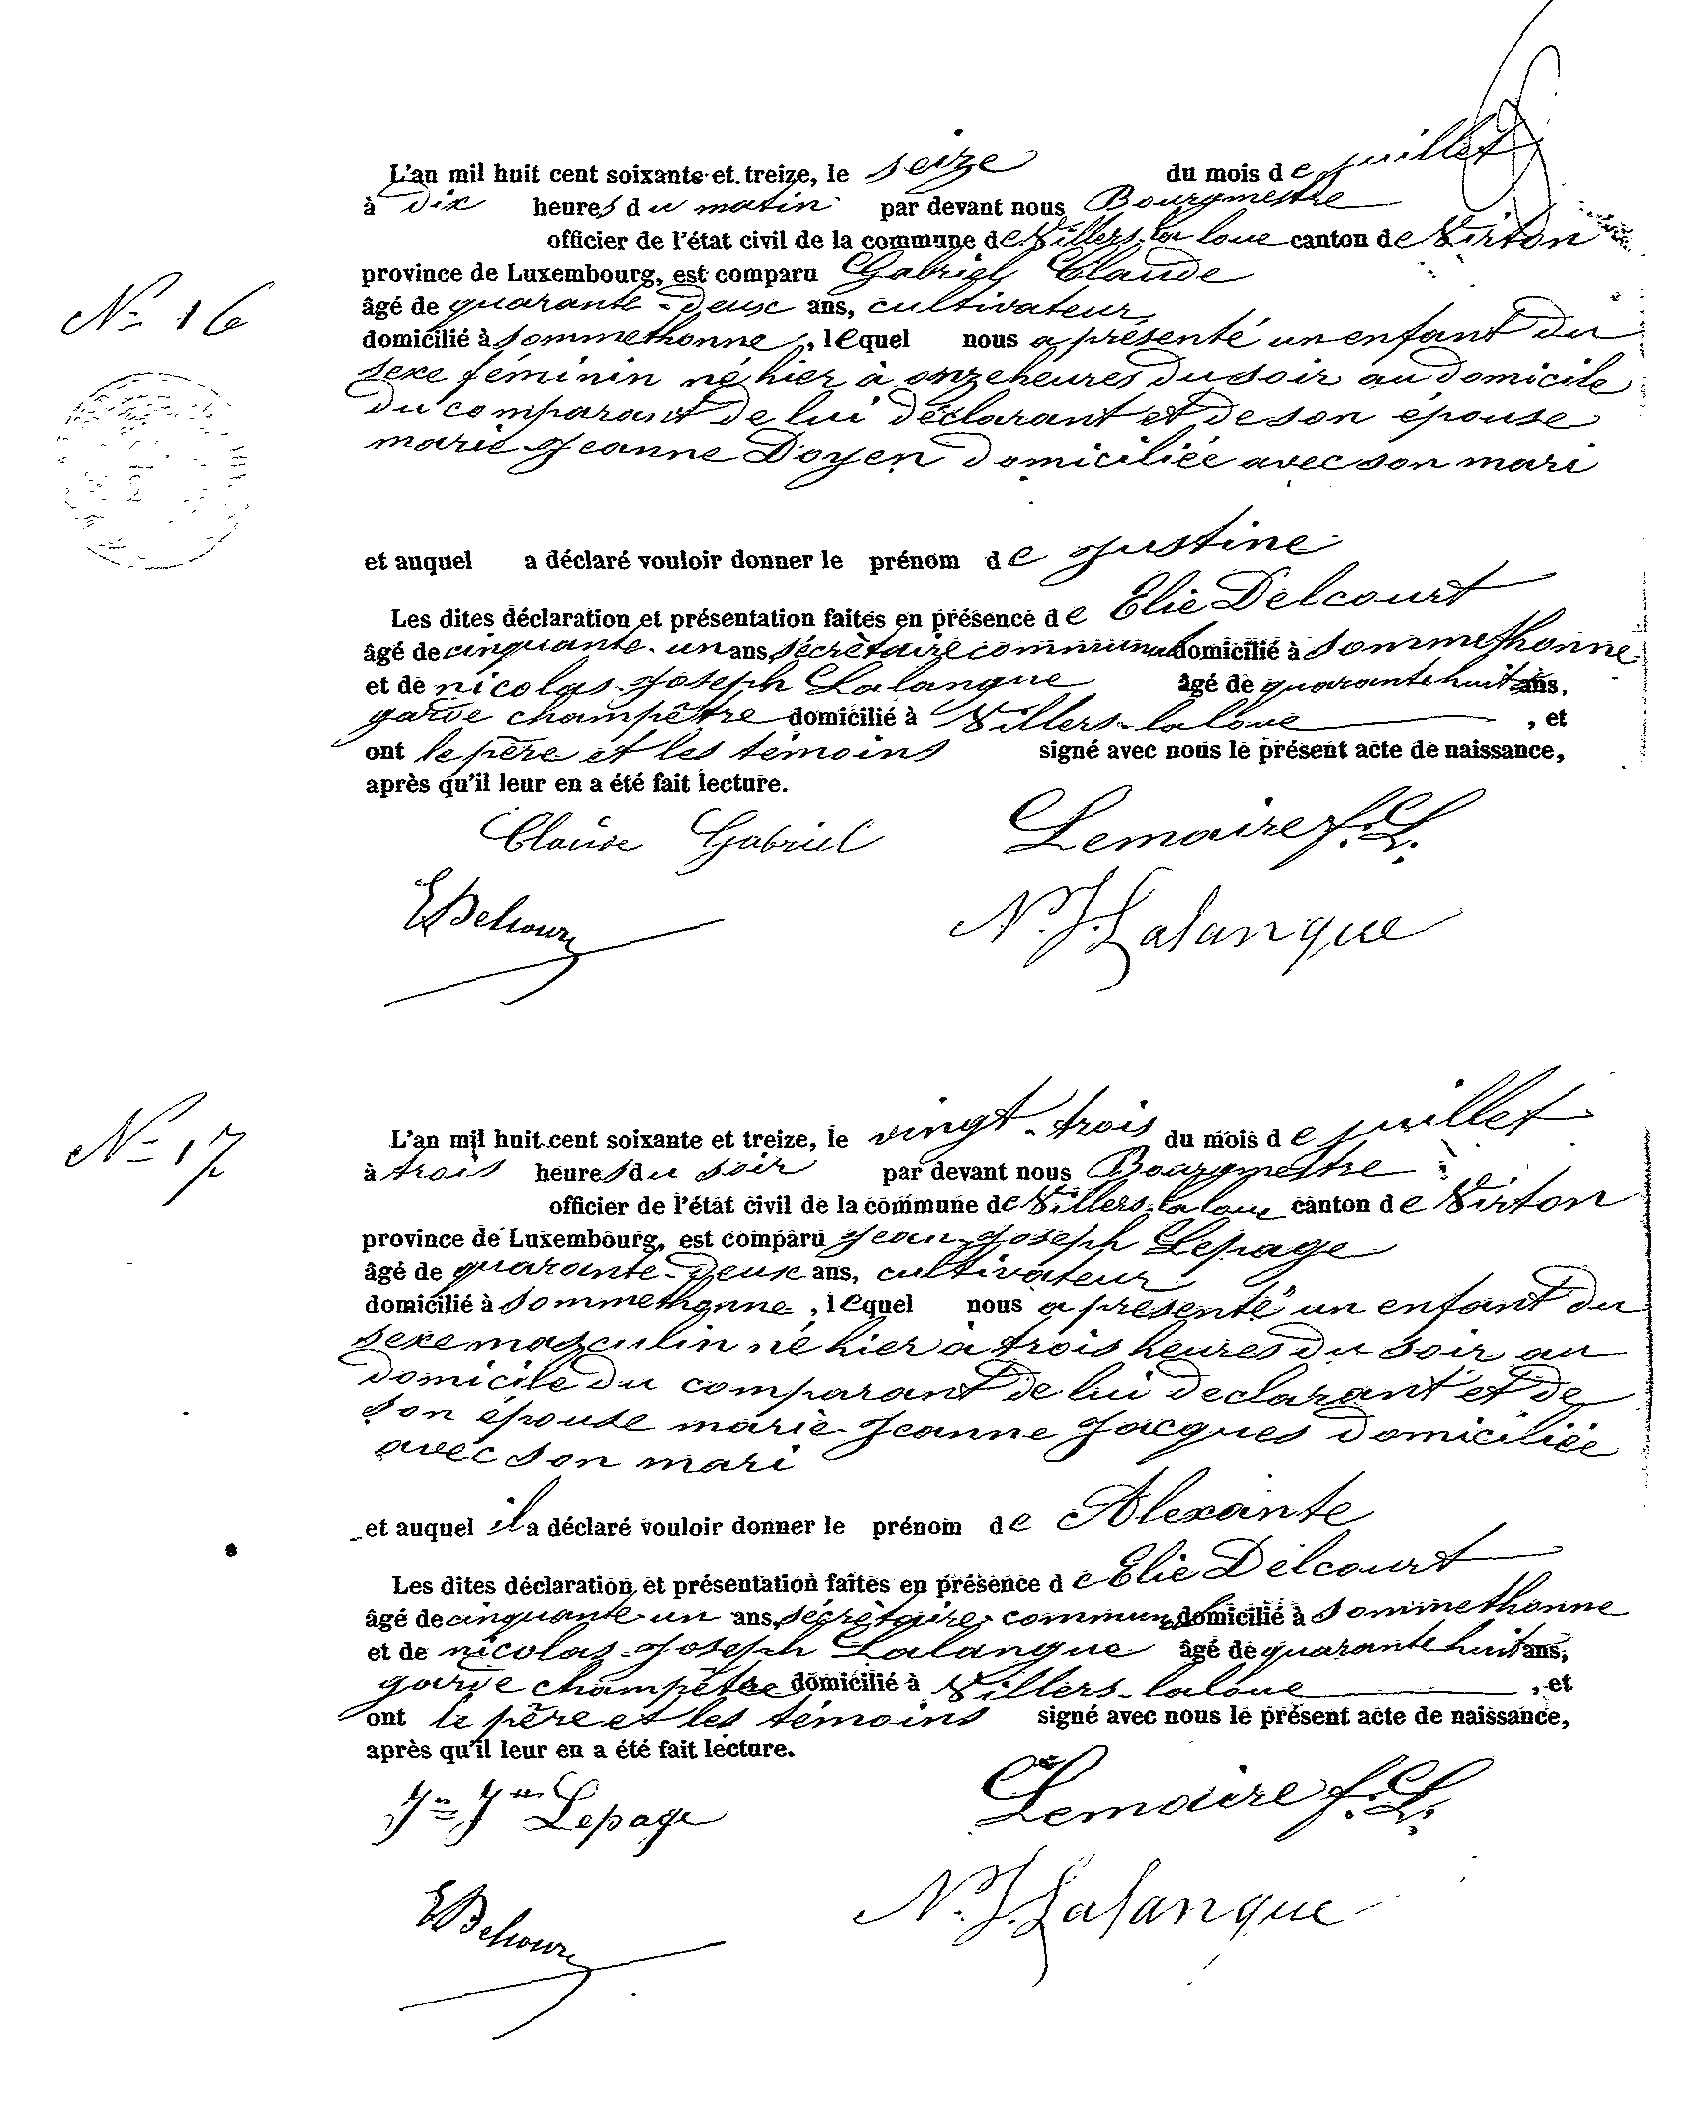 L'an mil huit cent soixante et treize, le seize du mois de juillet
à dix heures du matin par devant nous Bourgmestre
officier de l'état civil de la commune de Villers-la loue canton de Virton
province de Luxembourg, est comparu Gabriel Claude
N° 16
âgé de quarante-deux ans, cultivateur
domicilié à Sommethonne, lequel nous a présenté un enfant du
sexe féminin né hier à onze heures du soir au domicile
du comparant de lui déclarant et de son épouse
marie-Jeanne Doyen domiciliée avec son mari
et auquel a déclaré vouloir donner le prénom de Justine
Les dites déclaration et présentation faites en présence de Elie Delcourt
âgé de cinquante-un ans, sécrètaire communal domicilié à Sommethonne
et de nicolas-Joseph Lalangue âgé de quarante huit ans,
garde champêtre domicilié à Villers-laloue, et
ont le père et les témoins signé avec nous le présent acte de naissance,
après qu'il leur en a été fait lecture.
Claude Gabriel Lemaire f. L.
E Delcourt N. J. Lalangue
N° 17
L'an mil huit cent soixante et treize, le vingt-trois du mois de juillet
à trois heures du soir par devant nous Bourgmestre
officier de l'état civil de la commune de Villers-la loue canton de Virton
province de Luxembourg, est comparu Jean-Joseph Lepage
âgé de quarante-deux ans, cultivateur
domicilié à Sommethonne, lequel nous a présenté un enfant du
sexe masculin né hier à trois heures du soir au
domicile du comparant de lui declarant et de
son épouse marie-Jeanne Jacques domiciliée
avec son mari
et auquel il a déclaré vouloir donner le prénom de Alexante
Les dites déclaration et présentation faites en présence de Elie Delcourt
âgé de cinquante-un ans, sécrètaire communal domicilié à Sommethonne
et de nicolas-Joseph Lalangue âgé de quarante huit ans,
garde champêtre domicilié à Villers-laloue, et
ont le père et les témoins signé avec nous le présent acte de naissance,
après qu'il leur en a été fait lecture.
Lepage Lemaire f. L.
E Delcourt N. J. Lalangue